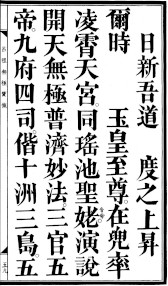 日新吾道　度之上昇
爾時　玉皇至尊在兜率
凌霄天宮同瑤池聖姥演說
開天無極普濟妙法三官五
帝九府四司偕十洲三島五